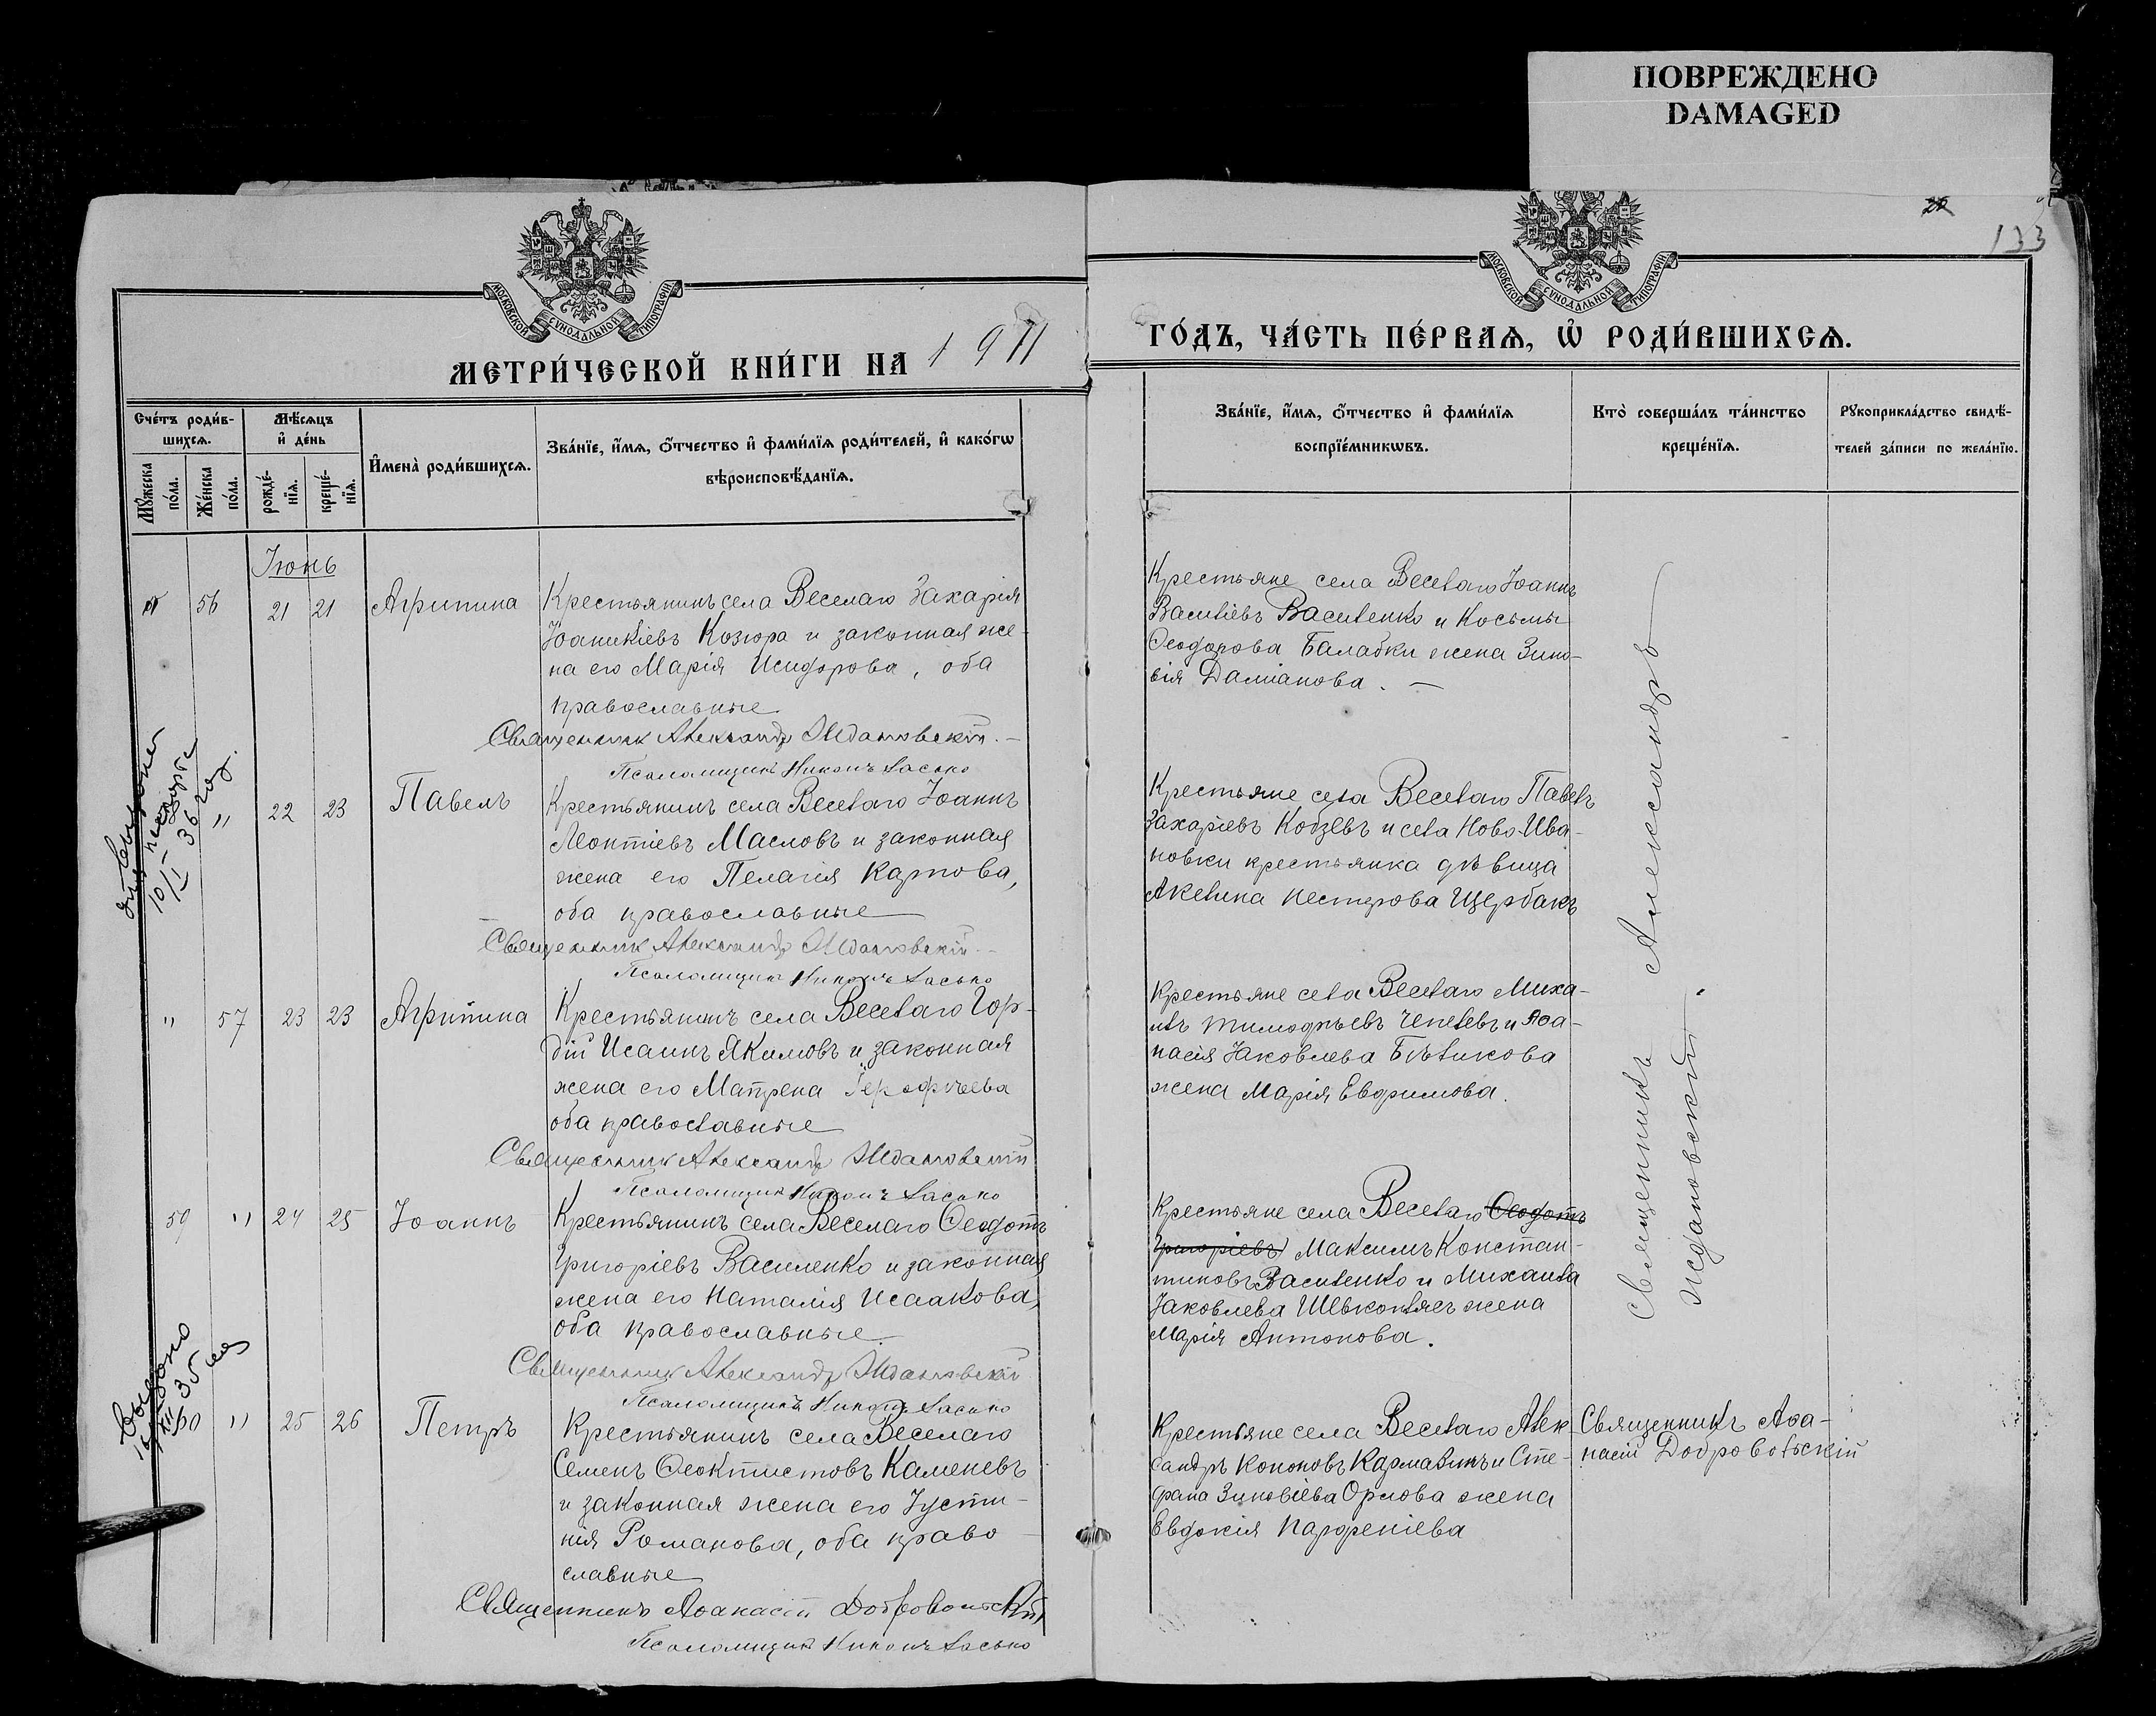 ПОВРЕЖДЕНО
DAMAGED
20
133
МОСКОВСКОЙ СУНОДАЛЬНОЙ ТИПОГРАФІИ
МОСКОВСКОЙ СУНОДАЛЬНОЙ ТИПОГРАФІИ
МЕТРИ́ЧЕСКОЙ КНИ́ГИ НА 1911
ГО́ДЪ, ЧА́СТЬ ПЕ́РВАѦ, Ѽ РОДИ́ВШИХСѦ.
Сче́тъ роди́в-
шихсѧ.
Мѣ́сѧцъ
и҆ де́нь
Мꙋ́жеска
по́ла.
Же́нска
по́ла.
рожде́-
нїѧ.
креще́-
нїѧ.
И҆мена̀ роди́вшихсѧ.
Зва́нїе, и҆́мѧ, ѻ҆́тчество и҆ фами́лїѧ роди́телей, и҆ како́гѡ
вѣроисповѣ́данїѧ.
Зва́нїе, и҆́мѧ, ѻ҆́тчество и҆ фами́лїѧ
воспрїе́мникѡвъ.
Кто̀ соверша́лъ та́инство
креще́нїѧ.
Рꙋкоприкла́дство свидѣ́-
телей за́писи по жела́нїю.
Іюнь
56 21 21 Агрипина
Крестьянинъ села Веселаго Захарія
Іоаникіевъ Козюра и законная же-
на его Марія Исидорова, оба
православные.
Священник Александр Ждановскій.
Псаломщикъ Никонъ Ласько
Крестьяне села Веселаго Іоаннъ
Василіевъ Василенко и Косьмы
Ѳеодорова Балабки жена Зино-
вія Даміанова. —
паспорте
10/I 36 год.
" 22 23 Павелъ
Крестьянинъ села Веселаго Іоаннъ
Леонтіевъ Масловъ и законная
жена его Пелагія Карпова,
оба православные
Священник Александр Ждановскій
Псаломщикъ Никонъ Ласько
Крестьяне села Веселаго Павелъ
Захаріевъ Кобзевъ и села Ново-Ива-
новки крестьянка дѣвица
Акелина Нестерова Щербакъ
" 57 23 23 Агрипина
Крестьянинъ села Веселаго Гор-
дій Исаинъ Якимовъ и законная
жена его Матрена
оба православные
Священник Александр Ждановскій
Псаломщикъ Никонъ Ласько
Крестьяне села Веселаго Миха-
илъ Тимофѣевъ Чепелевъ и Аѳа-
насія Іаковлева Бѣликова
жена Марія Евфимова.
59 " 24 25 Іоаннъ
Крестьянинъ села Веселаго Ѳеодотъ
Григоріевъ Василенко и законная
жена его Наталія Исаакова,
оба православные
Священник Александр Ждановскій
Псаломщикъ Никонъ Ласько
Крестьяне села Веселаго Ѳеодотъ
Григоріевъ Максимъ Констан-
тиновъ Василенко и Михаила
Іаковлева жена
Марія Антонова.
Священникъ Александръ
Ждановскій.
Выдано
XII 35
60 " 25 26 Петръ
Крестьянинъ села Веселаго
Семенъ Ѳеоктистовъ Каменевъ
и законная жена его Іусти-
нія Романова, оба право-
славные
Священникъ Аѳанасій Добровольскій
Псаломщикъ Никонъ Ласько
Крестьяне села Веселаго Алек-
сандръ Кононовъ Кармазинъ и Сте-
фана Зиновіева Орлова жена
Евдокія Парфеніева
Священникъ Аѳа-
насій Добровольскій